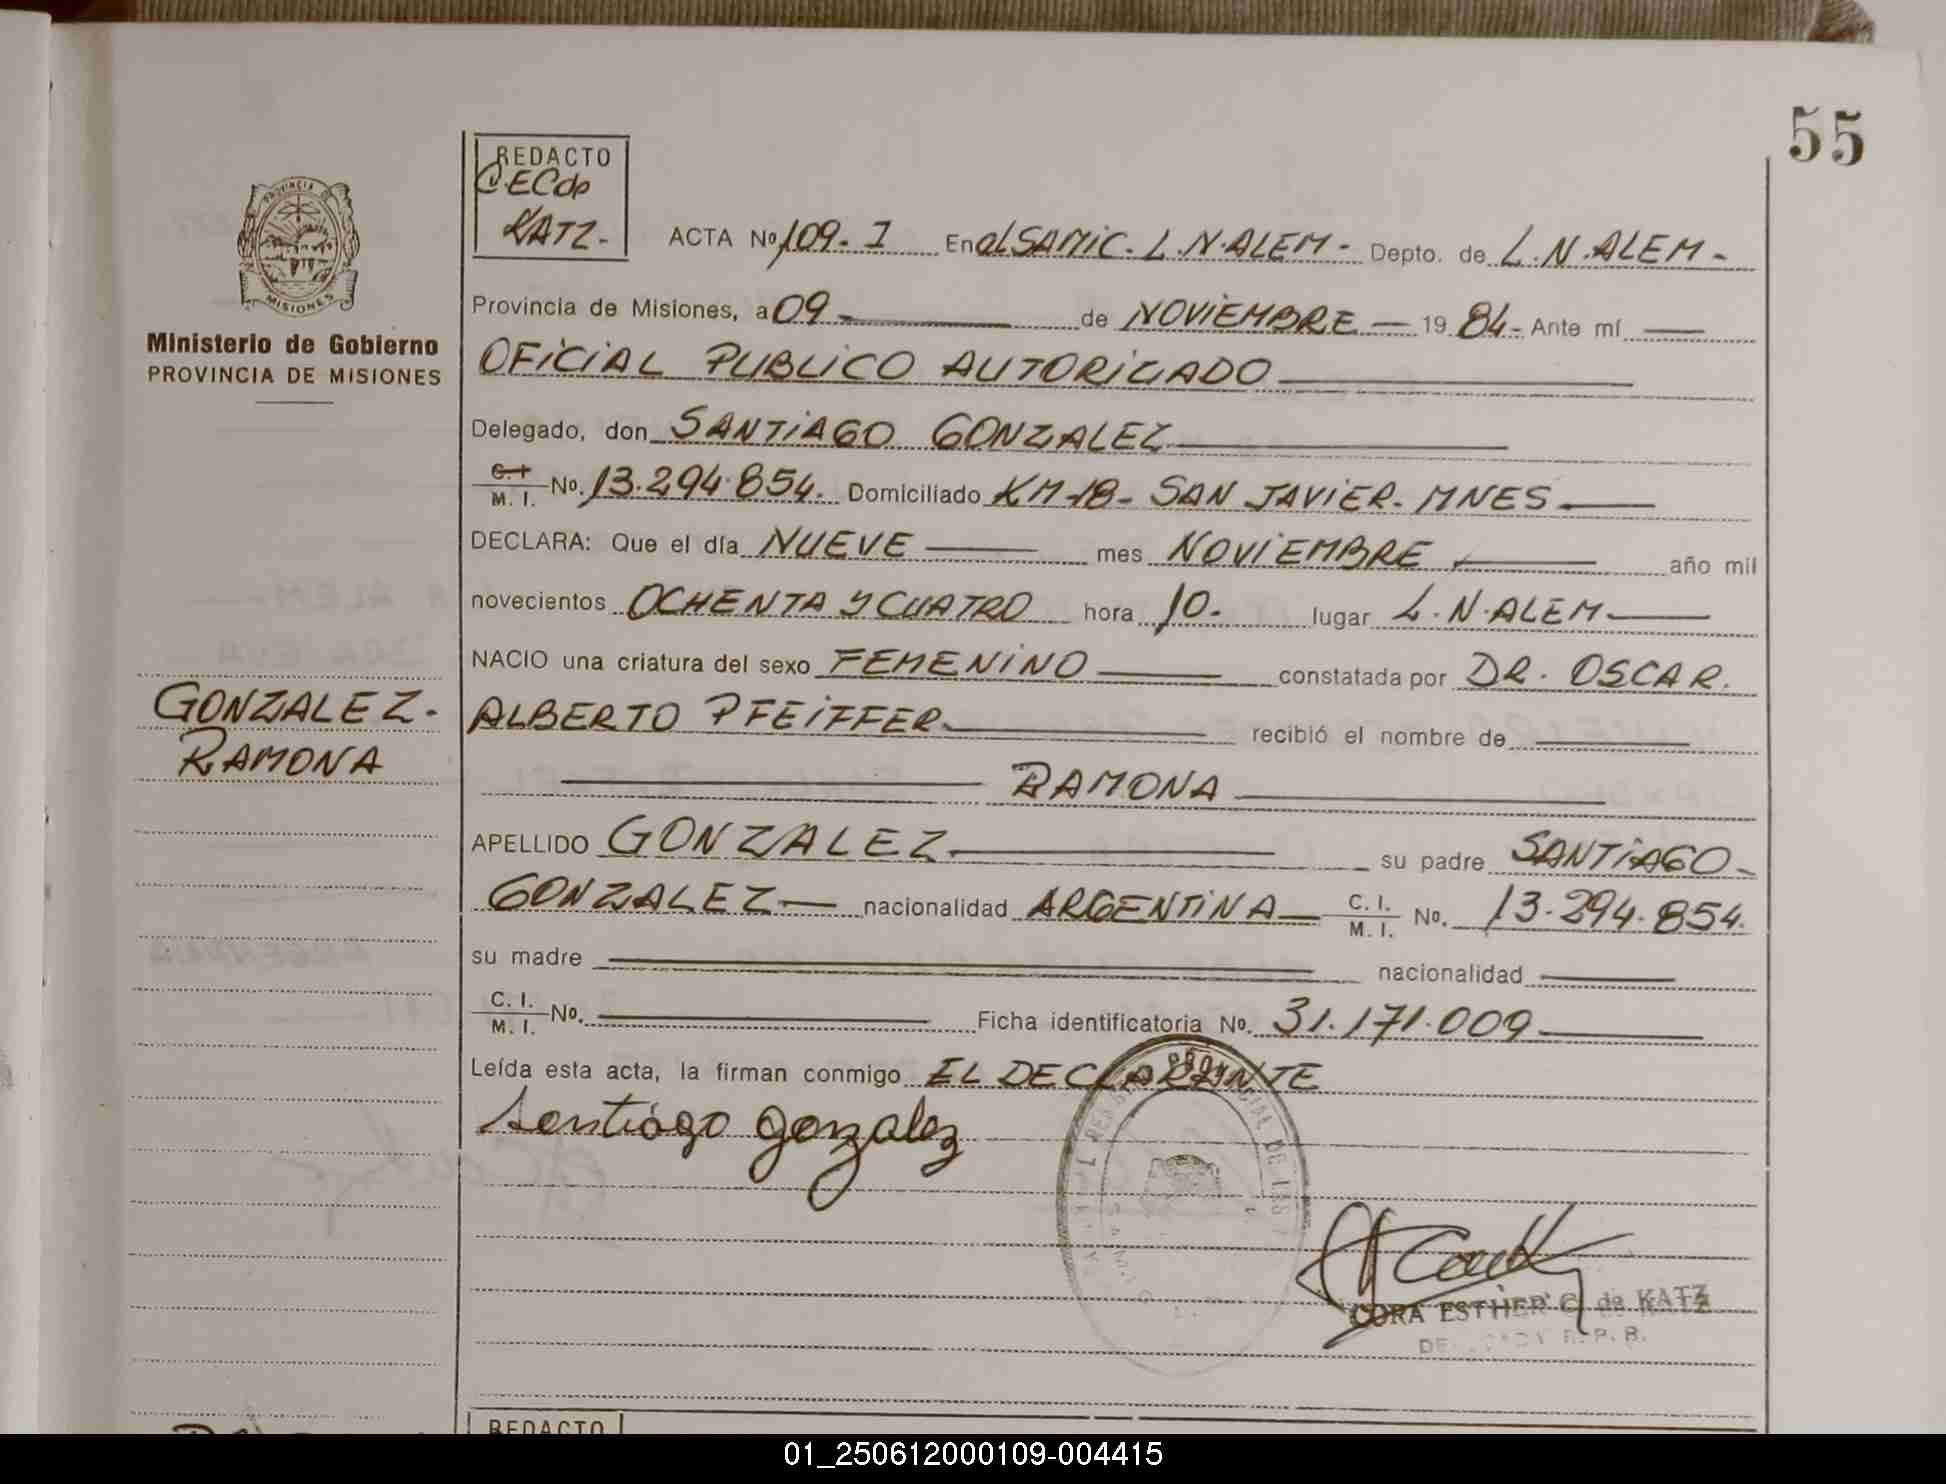 55
REDACTO
C.ECde
KATZ-
PROVINCIA DE
MISIONES
Ministerio de Gobierno
PROVINCIA DE MISIONES
ACTA No 109-I En el SAMIC. L.N.ALEM- Depto. de L.N.ALEM-
Provincia de Misiones, a 09 de NOVIEMBRE 1984- Ante mí
OFICIAL PUBLICO AUTORIZADO
Delegado, don SANTIAGO GONZALEZ
C.I. M. I. No. 13.294.854. Domiciliado KM-18- SAN JAVIER- MNES
DECLARA: Que el día NUEVE mes NOVIEMBRE año mil
novecientos OCHENTA Y CUATRO hora 10. lugar L.N.ALEM
NACIO una criatura del sexo FEMENINO constatada por DR. OSCAR.
ALBERTO PFEIFFER recibió el nombre de
RAMONA
GONZALEZ-
RAMONA
APELLIDO GONZALEZ su padre SANTIAGO-
GONZALEZ nacionalidad ARGENTINA C. I. M. I. No. 13.294.854.
su madre nacionalidad
C. I. M. I. No. Ficha identificatoria No. 31.171.009
Leída esta acta, la firman conmigo EL DECLARANTE
Santiago gonzalez
CORA ESTHER C. de KATZ
R. P. B.
REDACTO
01_250612000109-004415